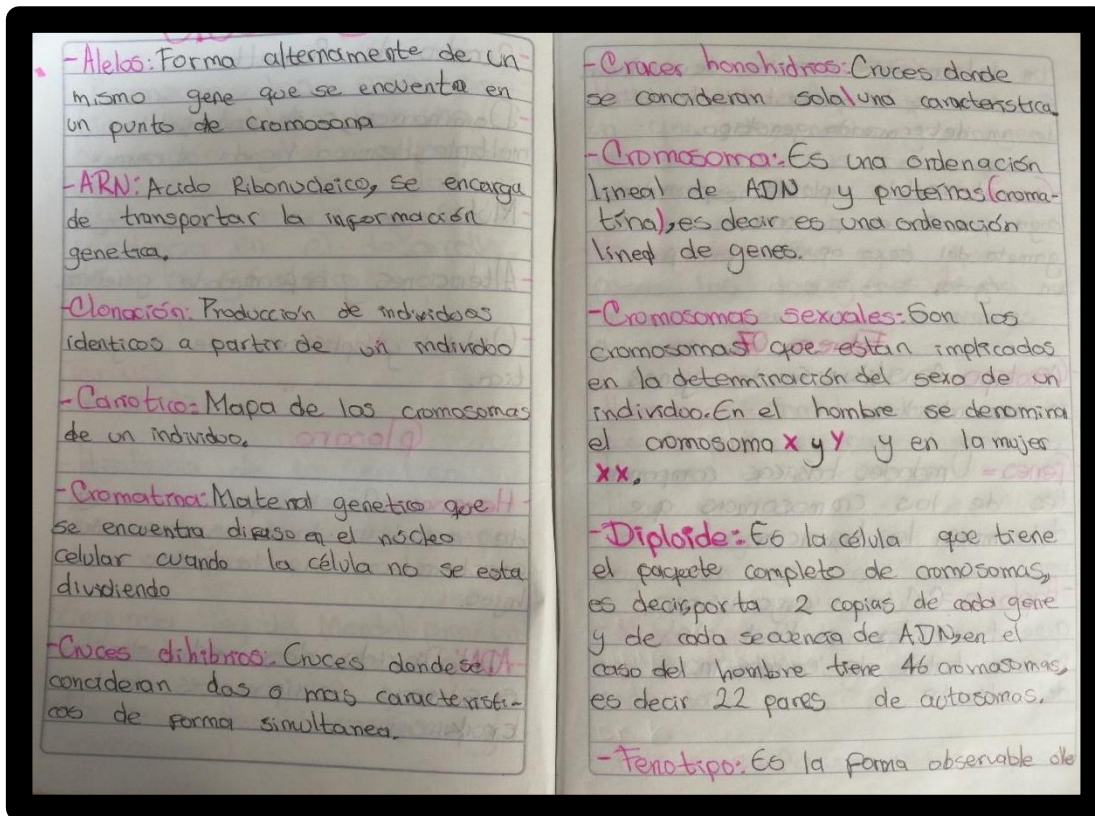 -Alelos: Forma alternamente de un
mismo gene que se encuentra en
un punto de cromosona
-ARN: Acido Ribonucleico, se encarga
de transportar la informacion
genetica.
-Clonación: Producción de individuos
identicos a partir de un individuo
-Cariotico: Mapa de los cromosomas
de un individuo.
-Cromatina: Material genetico que
se encuentra difuso en el núcleo
celular cuando la célula no se esta
dividiendo
-Cruces dihibrios: Cruces donde se
concideran dos o mas caracteristi-
cas de forma simultanea.
-Cruces honohidrios: Cruces donde
se concideran sola una caracteristica.
-Cromosoma: Es una ordenación
lineal de ADN y proteinas (croma-
tina), es decir es una ordenación
lineal de genes.
-Cromosomas sexuales: Son los
cromosomas que están implicados
en la determinación del sexo de un
individuo. En el hombre se denomina
el cromosoma X y Y y en la mujer
XX.
-Diploide: Es la célula que tiene
el paquete completo de cromosomas,
es decir porta 2 copias de cada gene
y de cada secuencia de ADN, en el
caso del hombre tiene 46 cromosomas,
es decir 22 pares de autosomas.
-Fenotipo: Es la forma observable de